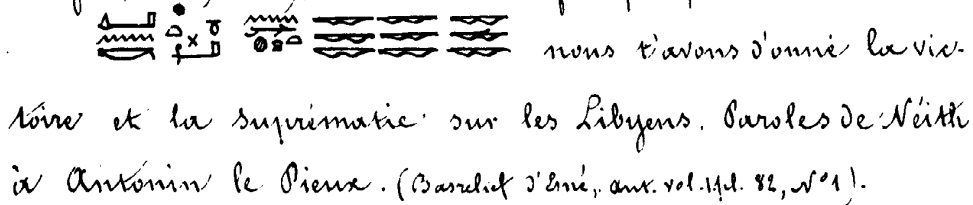 nous t'avons donné la vic-
toire et la suprématie sur les Libyens. Paroles de Néith
à Antonin le Pieux. (Basrelief d'Esné, ant. vol. 1, pl. 82, N° 1).